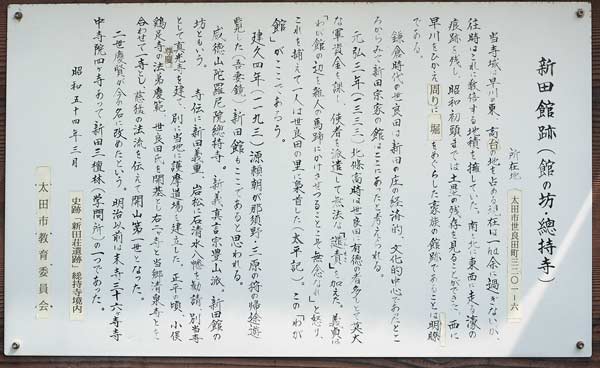 新田館跡(館の坊 總持寺)
所在地 太田市世良田町三二〇一ー六
当寺域、早川の東、高台の地を占める現在は一町余に過ぎないが、
往時はこれに数倍する地積を擁していた。南・北・東西に走る濠の
痕跡を残し、昭和初頭までは土塁の残存も見ることができた。西に
早川をひかえ周りに堀をめぐらした豪族の館跡であることは明瞭
である。
鎌倉時代の世良田は新田の庄の経済的、文化的中心であったとこ
ろからみて新田宗家の館はここにあったと考えられる。
元弘三年(一三三三)北條高時は世良田有徳の者多しとして莫大
な軍資金を課し、使者を派遣して無法な譴責を加えた。義貞は
「わが館の辺を雑人の馬蹄にかけさせつることこそ無念なれ」と怒り、
これを捕えて一人は世良田の里に梟首した(太平記)。この「わが
館」がここであろう。
建久四年(一一九三)源頼朝が那須野・三原の狩の帰途遊
覧した(吾妻鏡)新田館もここであると思われる。
威徳山陀羅尼院總持寺 新義真言宗豊山派。新田館の
坊ともいう。 寺伝に新田義重、岩松に石清水八幡を勧請、別当寺
として真光寺を建て、別に当地に護摩道場を建立した。正平の頃、小俣
鶏足寺の法弟慶範、世良田氏を開基とし右二寺と当郷清泉寺とを
合わせて一寺とし慈猛の法流を伝えて開山第一世となった。
二世慶賢が今の名に改めたという。明治以前は末寺三十六ヶ寺寺
中寺院四ヶ寺あって新田三檀林(学問所)の一つであった。
昭和五十四年三月
史跡「新田荘遺跡」總持寺境内
太田市教育委員会